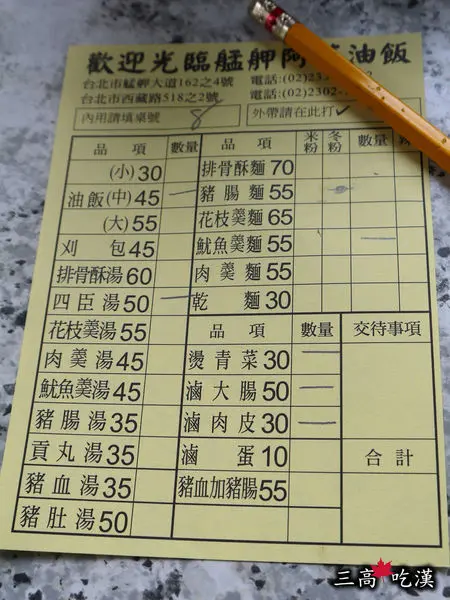 歡迎光臨艋舺阿 油飯
台北市艋舺大道162之4號 電話:(02)23
台北市西藏路518之2號 電話:(02)2302-
內用請填桌號 8 外帶請在此打✓
品項 數量 品項 米粉 冬粉 數量
(小)30 排骨酥麵70
油飯(中)45 一 豬腸麵55
(大)55 花枝羹麵65
刈包45 魷魚羹麵55 一
排骨酥湯60 肉羹麵55
四臣湯50 一 乾麵30
花枝羹湯55 品項 數量 交待事項
肉羹湯45 燙青菜30 一
魷魚羹湯45 滷大腸50 一
豬腸湯35 滷肉皮30 一
貢丸湯35 滷蛋10 合計
豬血湯35 豬血加豬腸55
豬肚湯50
三高吃漢